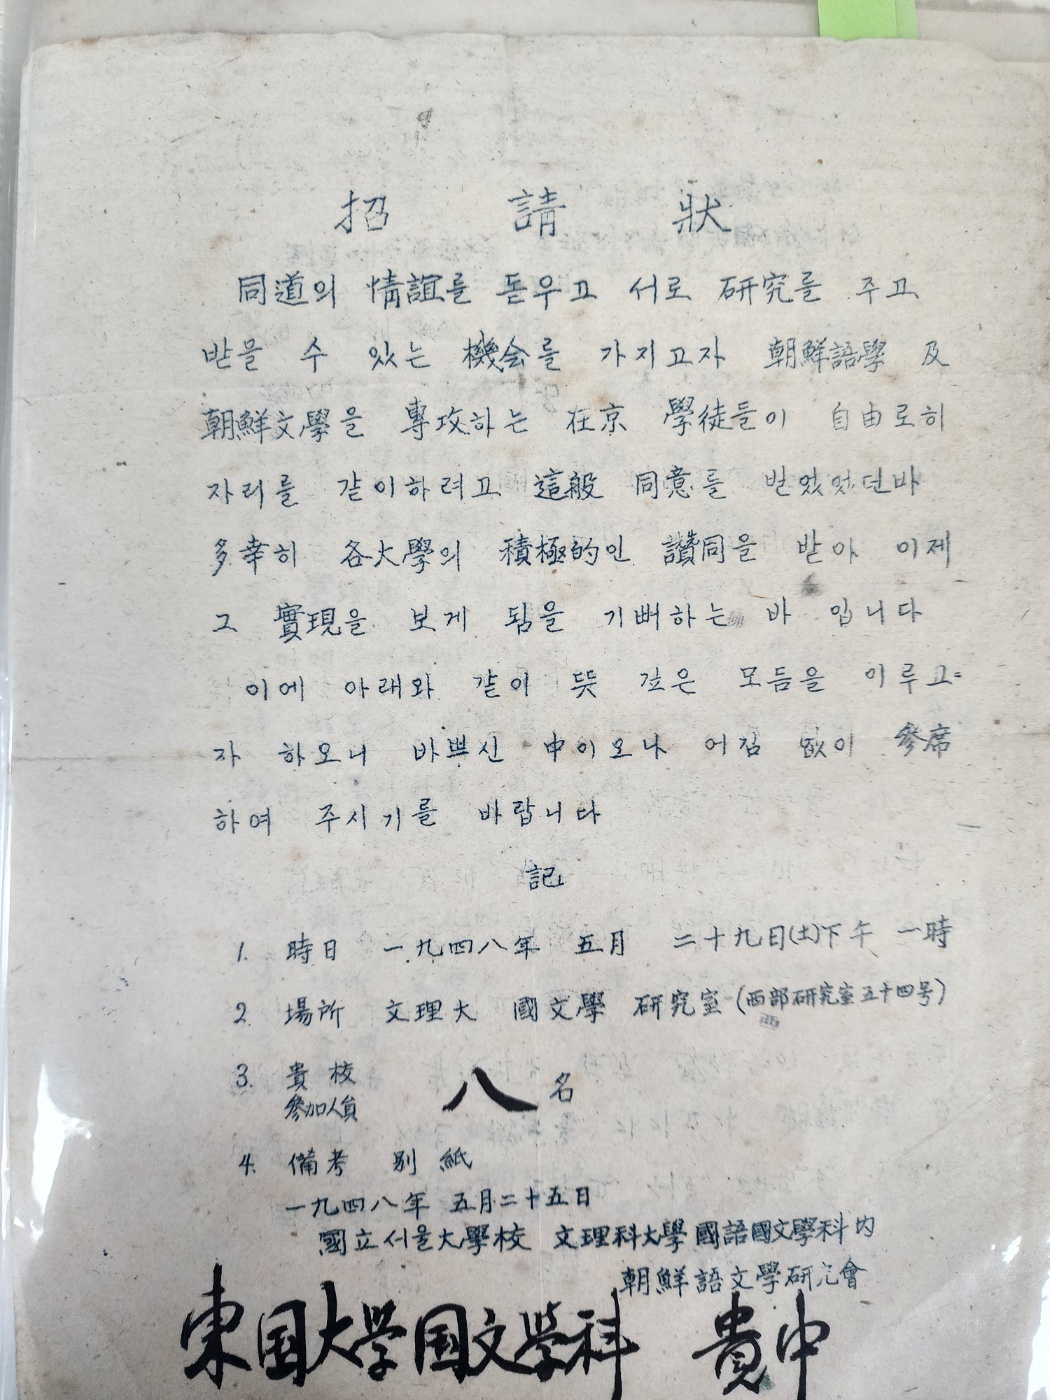 招請狀
同道의 情誼를 돋우고 서로 硏究를 주고
받을 수 있는 機会를 가지고자 朝鮮語學 及
朝鮮文學을 專攻하는 在京 學徒들이 自由로히
자리를 같이하려고 這般 同意를 받었었던바
多幸히 各大學의 積極的인 讚同을 받아 이제
그 實現을 보게 됨을 기뻐하는 바 입니다
이에 아래와 같이 뜻 깊은 모듬을 이루고
자 하오니 바쁘신 中이오나 어김 없이 參席
하여 주시기를 바랍니다
記
1. 時日 一九四八年 五月 二十九日(土)下午 一時
2. 場所 文理大 國文學 硏究室 (西部硏究室五十四号)
3. 貴校 參加人員 八名
4. 備考 別紙
一九四八年 五月二十五日
國立서울大學校 文理科大學 國語國文學科內
朝鮮語文學硏究會
東国大学国文学科 貴中